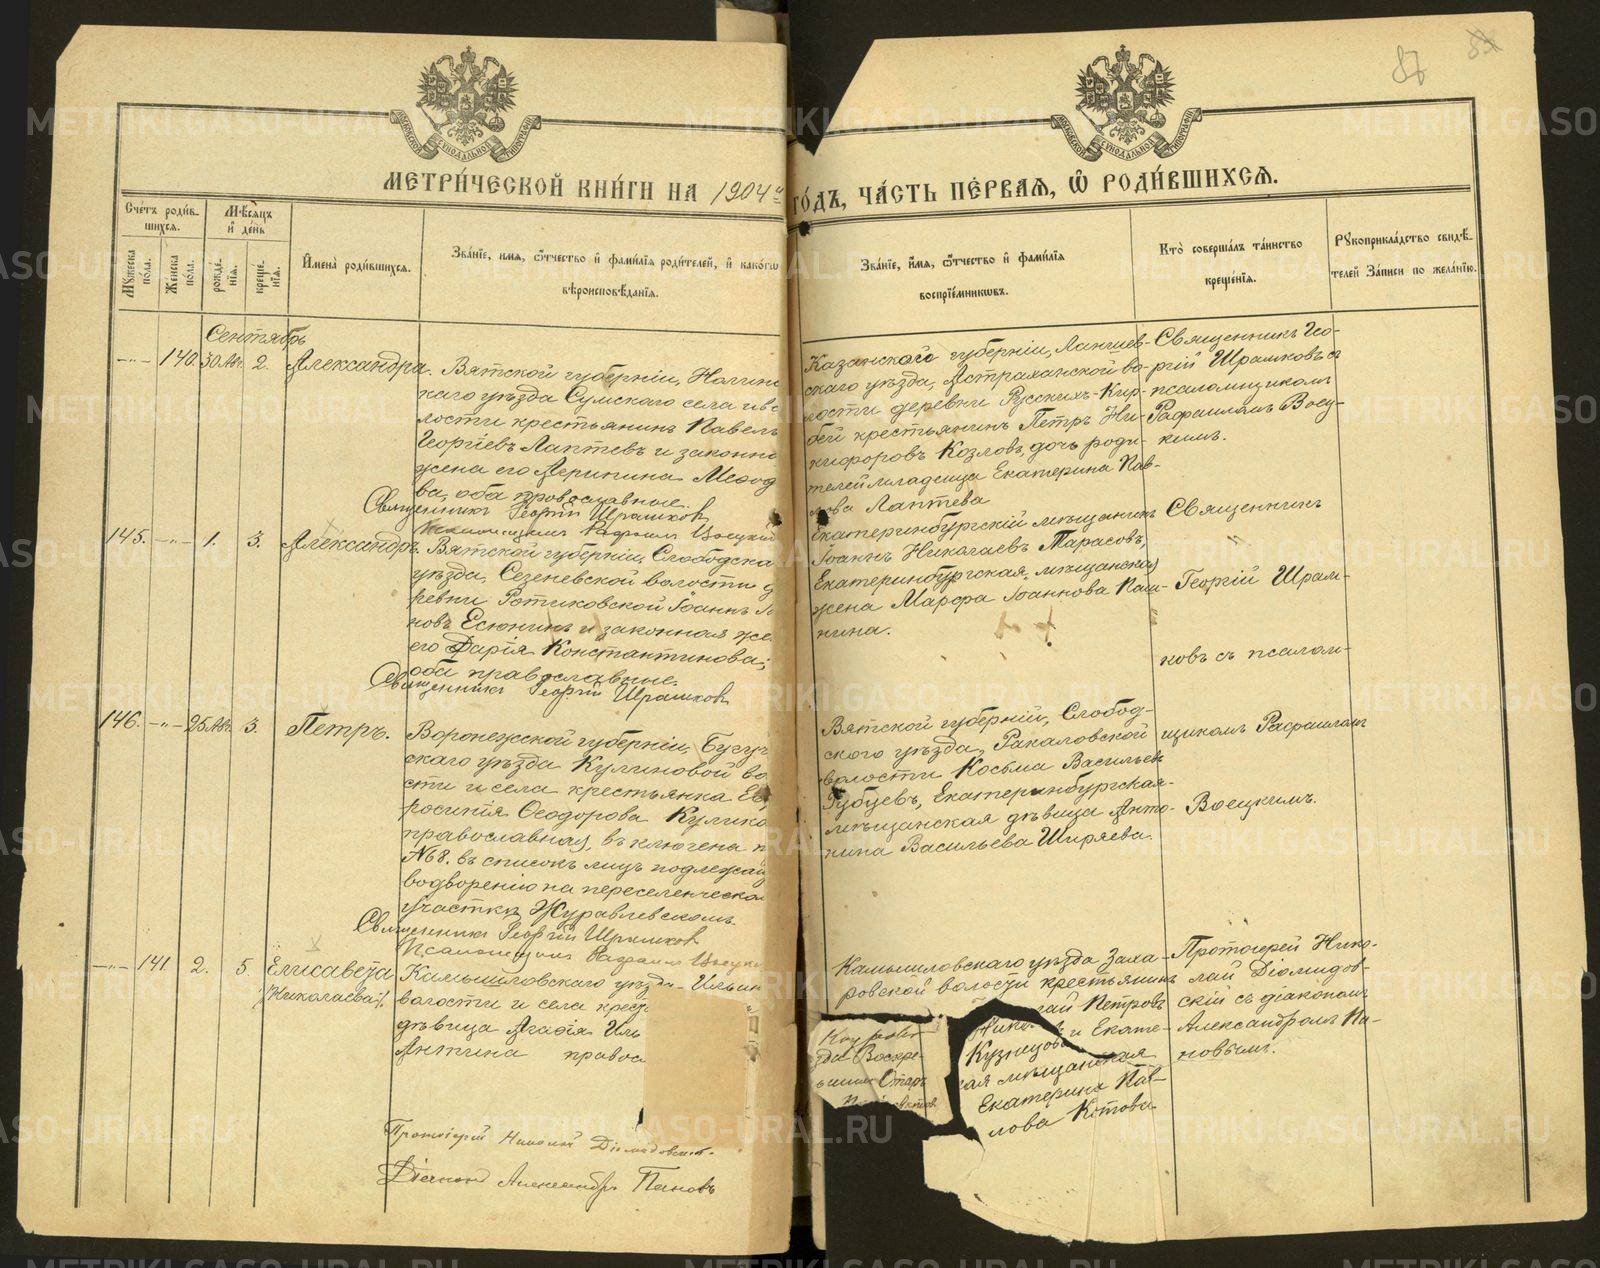 87
МЕТРИ́ЧЕСКОЙ КНИ́ГИ НА 1904й
ГО́ДЪ, ЧА́СТЬ ПЕ́РВАЯ, Ѡ҆ РОДИ́ВШИХСЯ.
Сче́тъ роди́в-
шихся.
Мѣ́сяцъ
и҆ де́нь
Мꙋ́жеска по́ла.
Же́нска по́ла.
рожде́-
нїя.
креще́-
нїя.
И҆мена̀ роди́вшихся.
Зва́нїе, и҆мя, ѻ҆́тчество и҆ фами́лїя роди́телей, и҆ како́гѡ
вѣроисповѣ́данїя.
Зва́нїе, и҆́мя, ѻ҆́тчество и҆ фами́лїя
воспрїе́мникѡвъ.
Кто̀ соверша́лъ та́инство
креще́нїя.
Рꙋкоприкла́дство свидѣ́-
телей За́писи по жела́нїю.
Сентябрь
-"- 140. 30 Авг. 2. Александра.
Вятской губерніи, Нолинс
каго уѣзда Сумскаго села и во
лости крестьянинъ Павелъ
Георгіевъ Лаптевъ и законна
жена его
ва, оба православные.
Священникъ Георгій Шрамковъ
Казанскаго губерніи, Лаишев-
скаго уѣзда, Астраханской во-
лости деревни Русскихъ-Кир-
бей крестьянинъ Петръ Ни-
кифоровъ Козловъ, дочь роди-
телей младенца Екатерина Пав-
лова Лаптева
Священникъ Гео-
ргій Шрамковъ съ
псаломщикомъ
Рафаиломъ Воец-
кимъ.
145. -"- 1. 3. Александръ.
Вятской губерніи, Слободска
уѣзда, Сезеневской волости д
ревни Ротиковской Іоаннъ
новъ Есюнинъ и законная же
его Дарія Константинова;
оба православные.
Священникъ Георгій Шрамковъ
Екатеринбургскій мѣщанинъ
Іоаннъ Николаевъ Тарасовъ,
Екатеринбургская мѣщанская
жена Марфа Іоаннова Паш-
нина.
Священникъ
Георгій Шрам-
ковъ съ псалом-
146. -"- 25 Авг. 3. Петръ.
Воронежской губерніи, Бугуч
скаго уѣзда Кулиновой во
сти и села крестьянка Ев
росинія Ѳеодорова Кулико
православная, включена п
№ 8. въ списокъ лицъ подлежащ
водворенію на переселенческо
участкѣ Журавлевскомъ.
Священникъ Георгій Шрамковъ
Вятской губерніи, Слобод-
ского уѣзда, Ракаловской
волости Косьма Васильевъ
Рубцевъ, Екатеринбургская
мѣщанская дѣвица Анто-
нина Васильева Ширяева.
щикомъ Рафаиломъ
Воецкимъ.
-"- 141 2. 5. Елисавета
(Николаева).
Камышловскаго уѣзда Ильин
волости и села крест
дѣвица Агафія Иль
Антина правос
Протоіерей Николай Діомидовскій.
Діаконъ Александръ Пановъ
Камышловскаго уѣзда Заха-
ровской волости крестьянинъ
Нико лай Петровъ
Кузнецовъ и Екате-
ская мѣщанская
Екатерина Пав-
лова Котова
зда Воскре-
Протоіерей Нико-
лай Діомидов-
скій съ діакономъ
Александромъ Па-
новымъ.